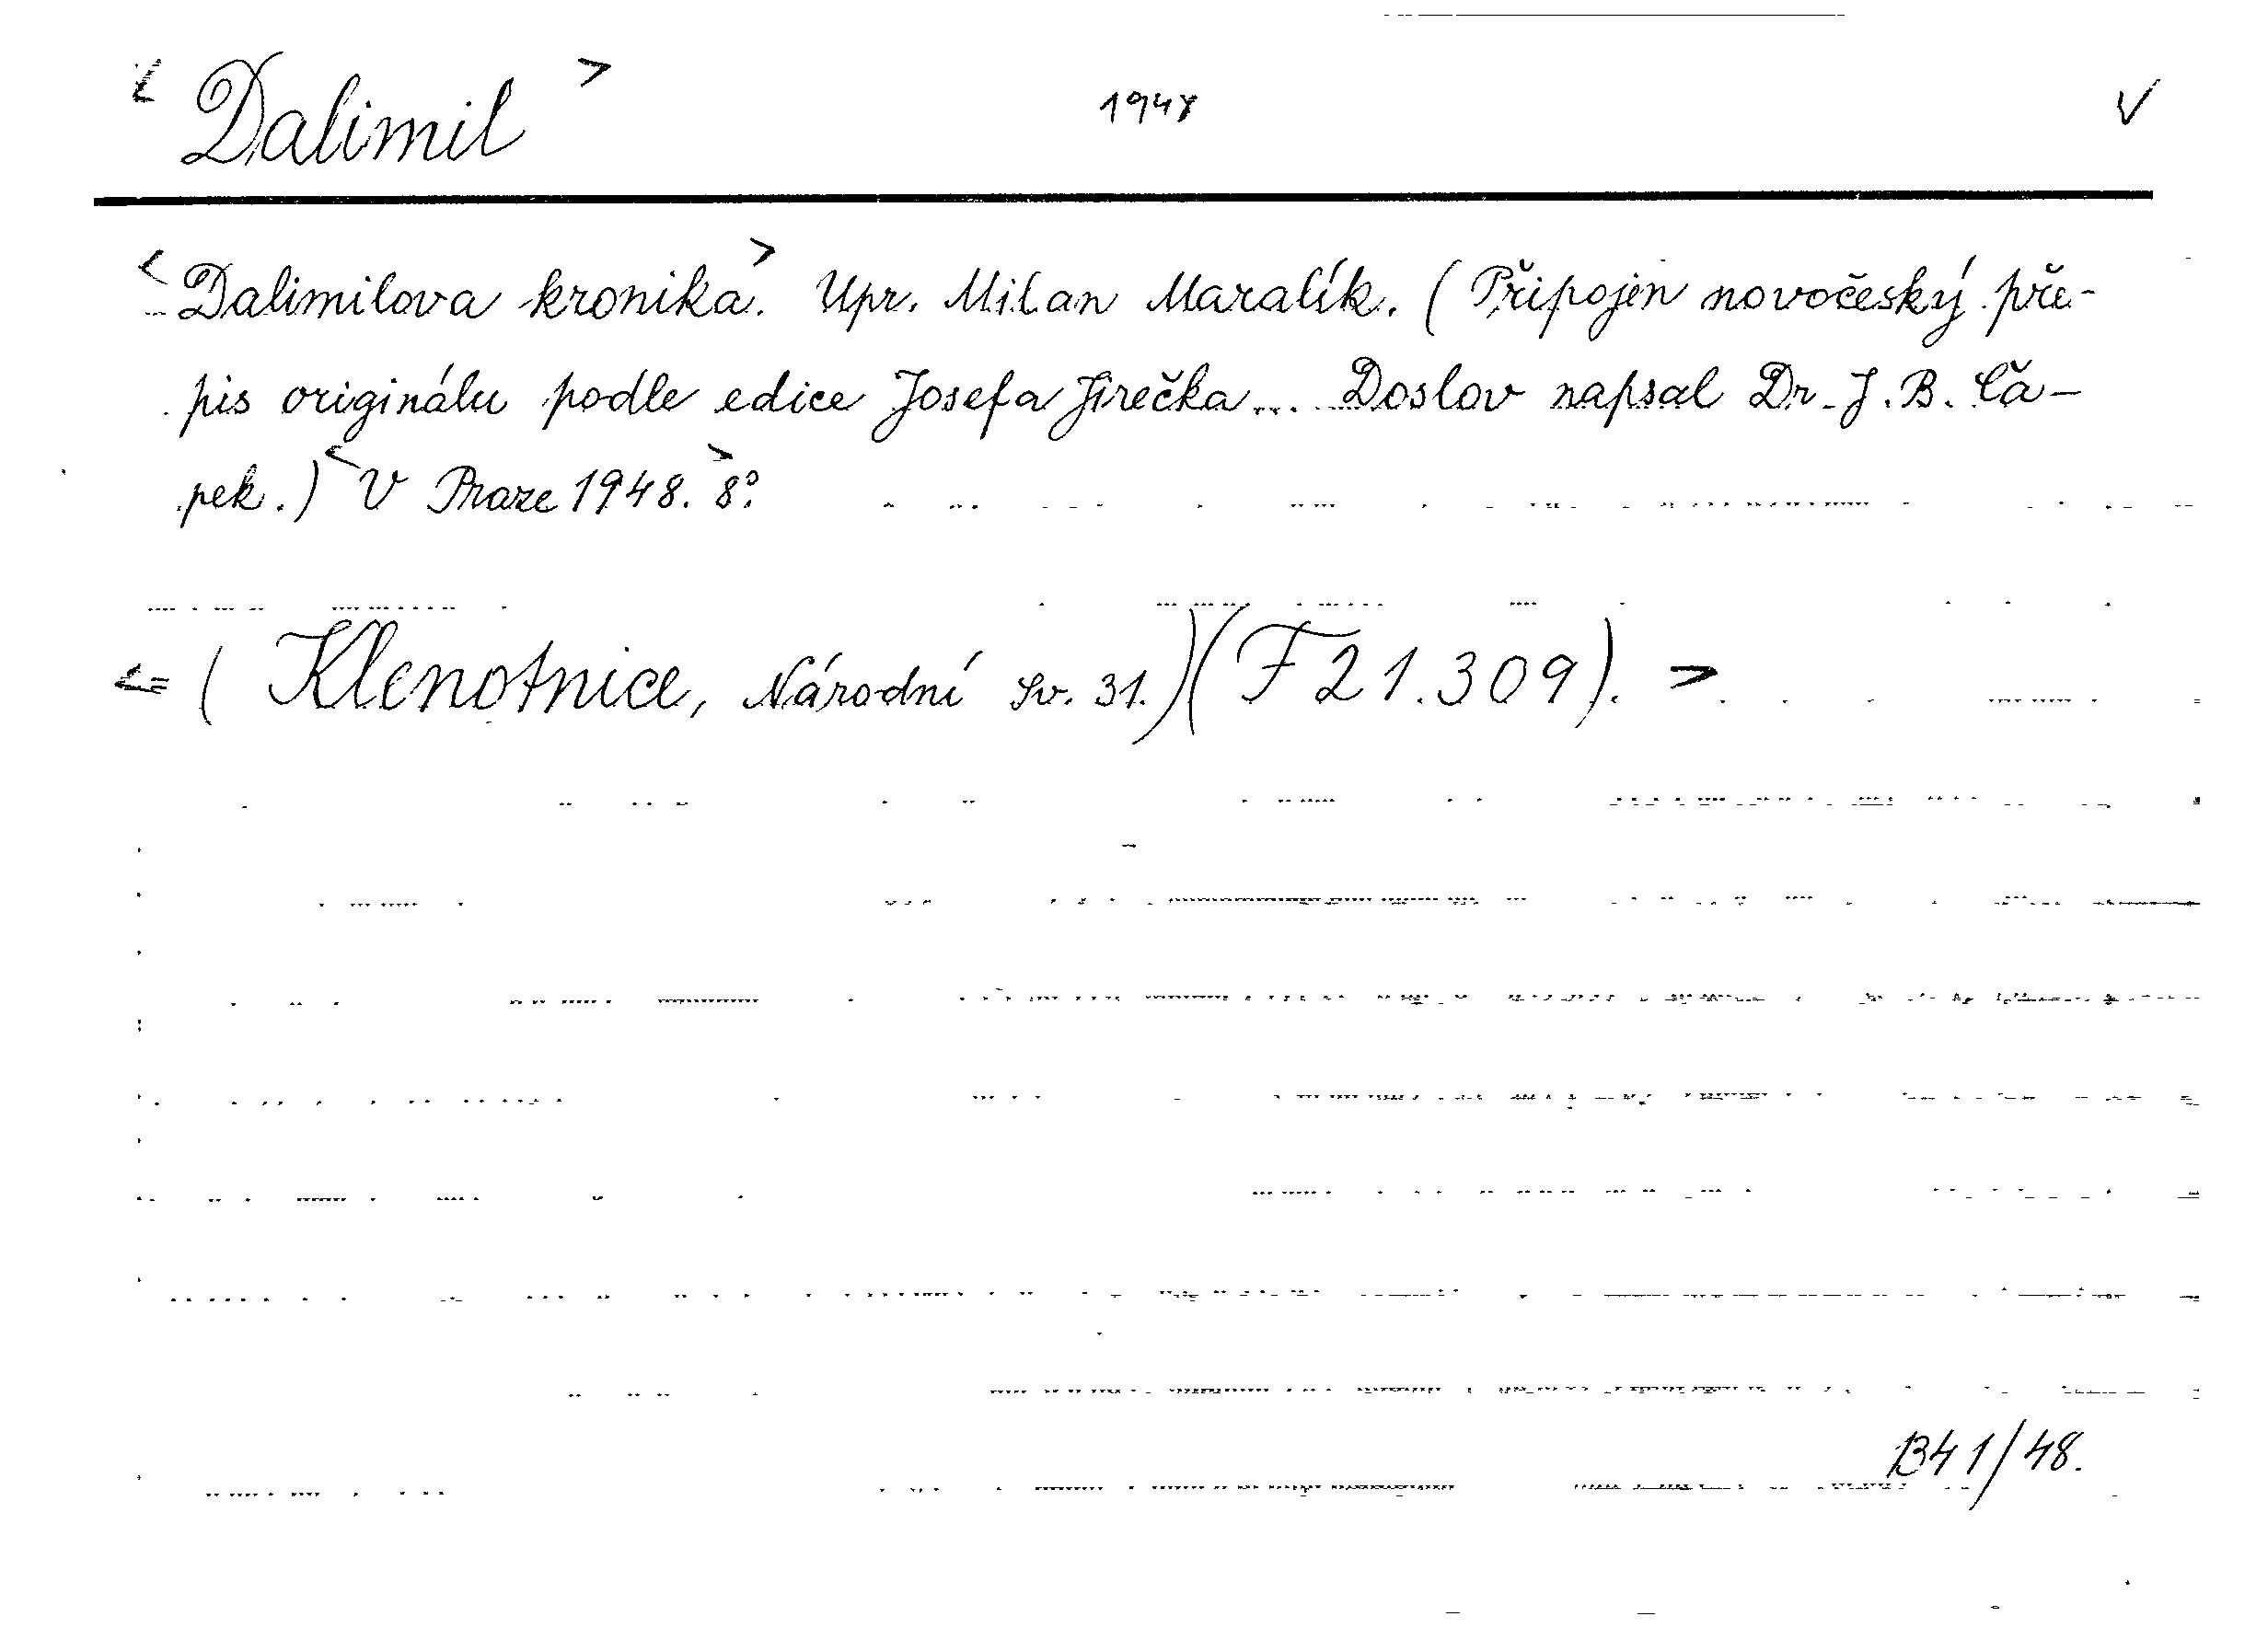 < Dalimil > 1948 V
< Dalimilova kronika. > Upr. Milan Maralík. (Připojen novočeský pře-
pis originálu podle edice Josefa Jirečka... Doslov napsal Dr. J. B. Ča-
pek.) < V Praze 1948. > 8°.
<= ( Klenotnice, Národní Sv. 31.)(F 21.309). >
B41/48.